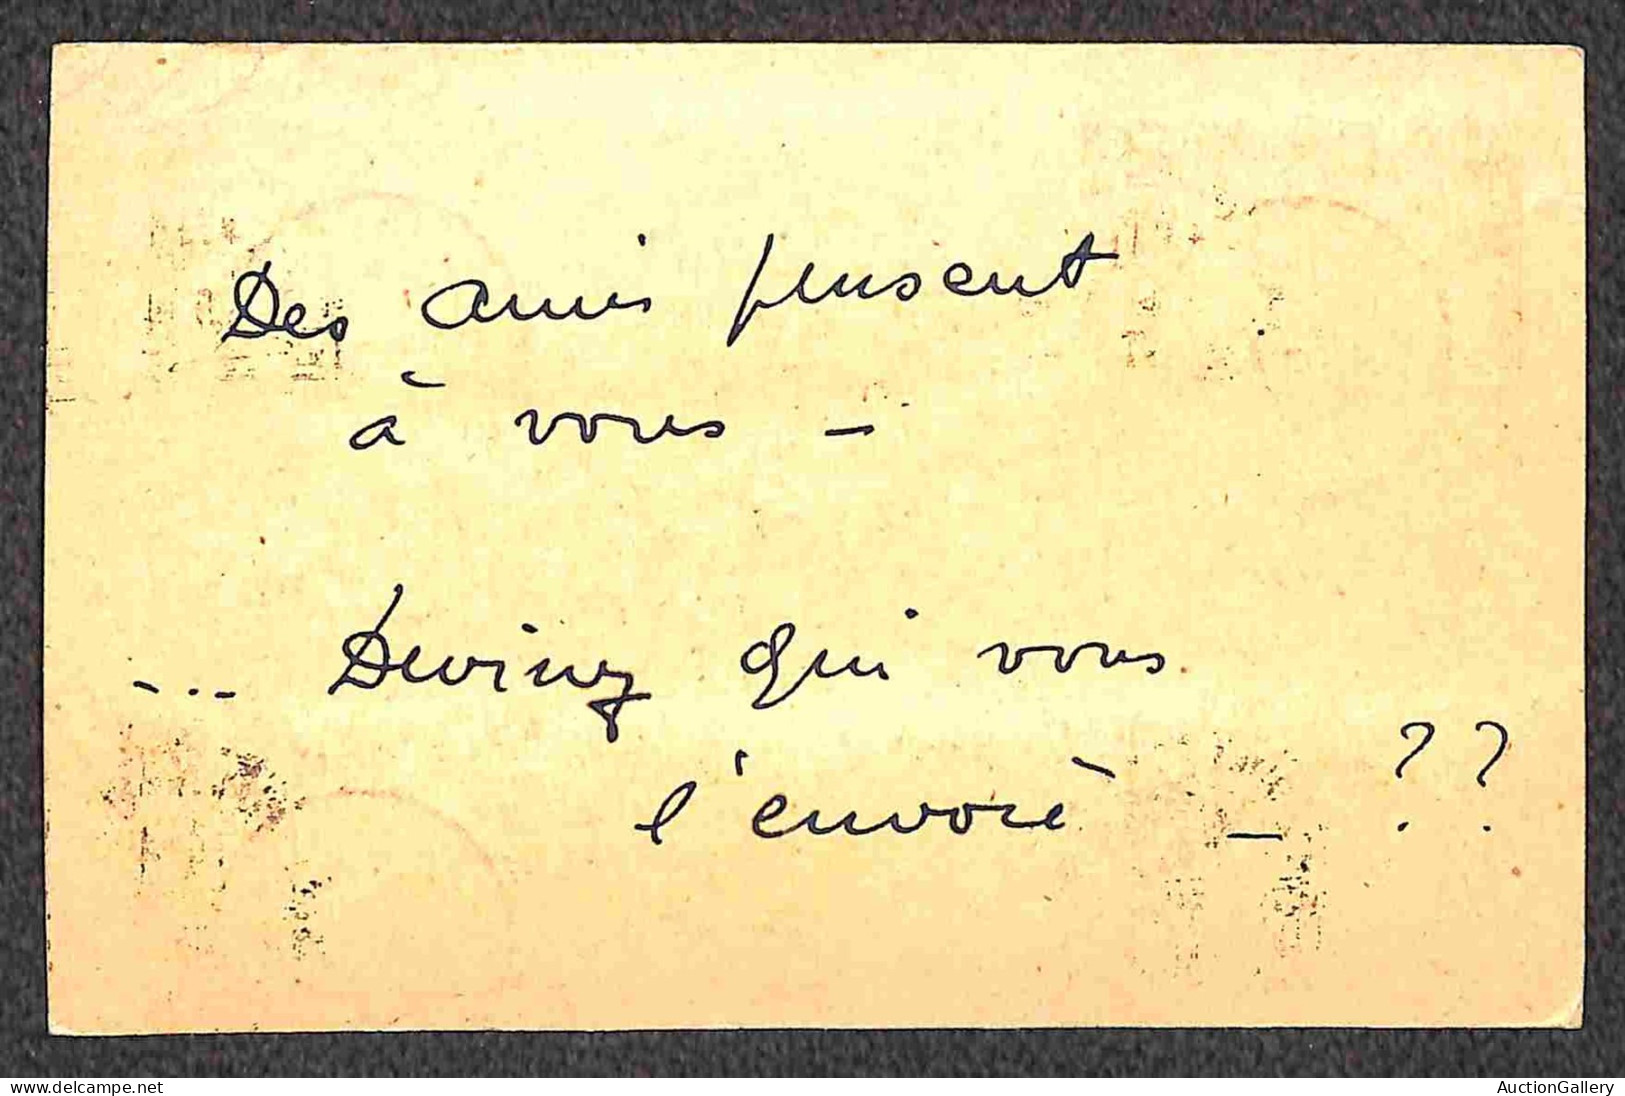 Des amis pensent
à vous –
... Devinez qui vous
l'envoié – ??
www.delcampe.net
AuctionGallery